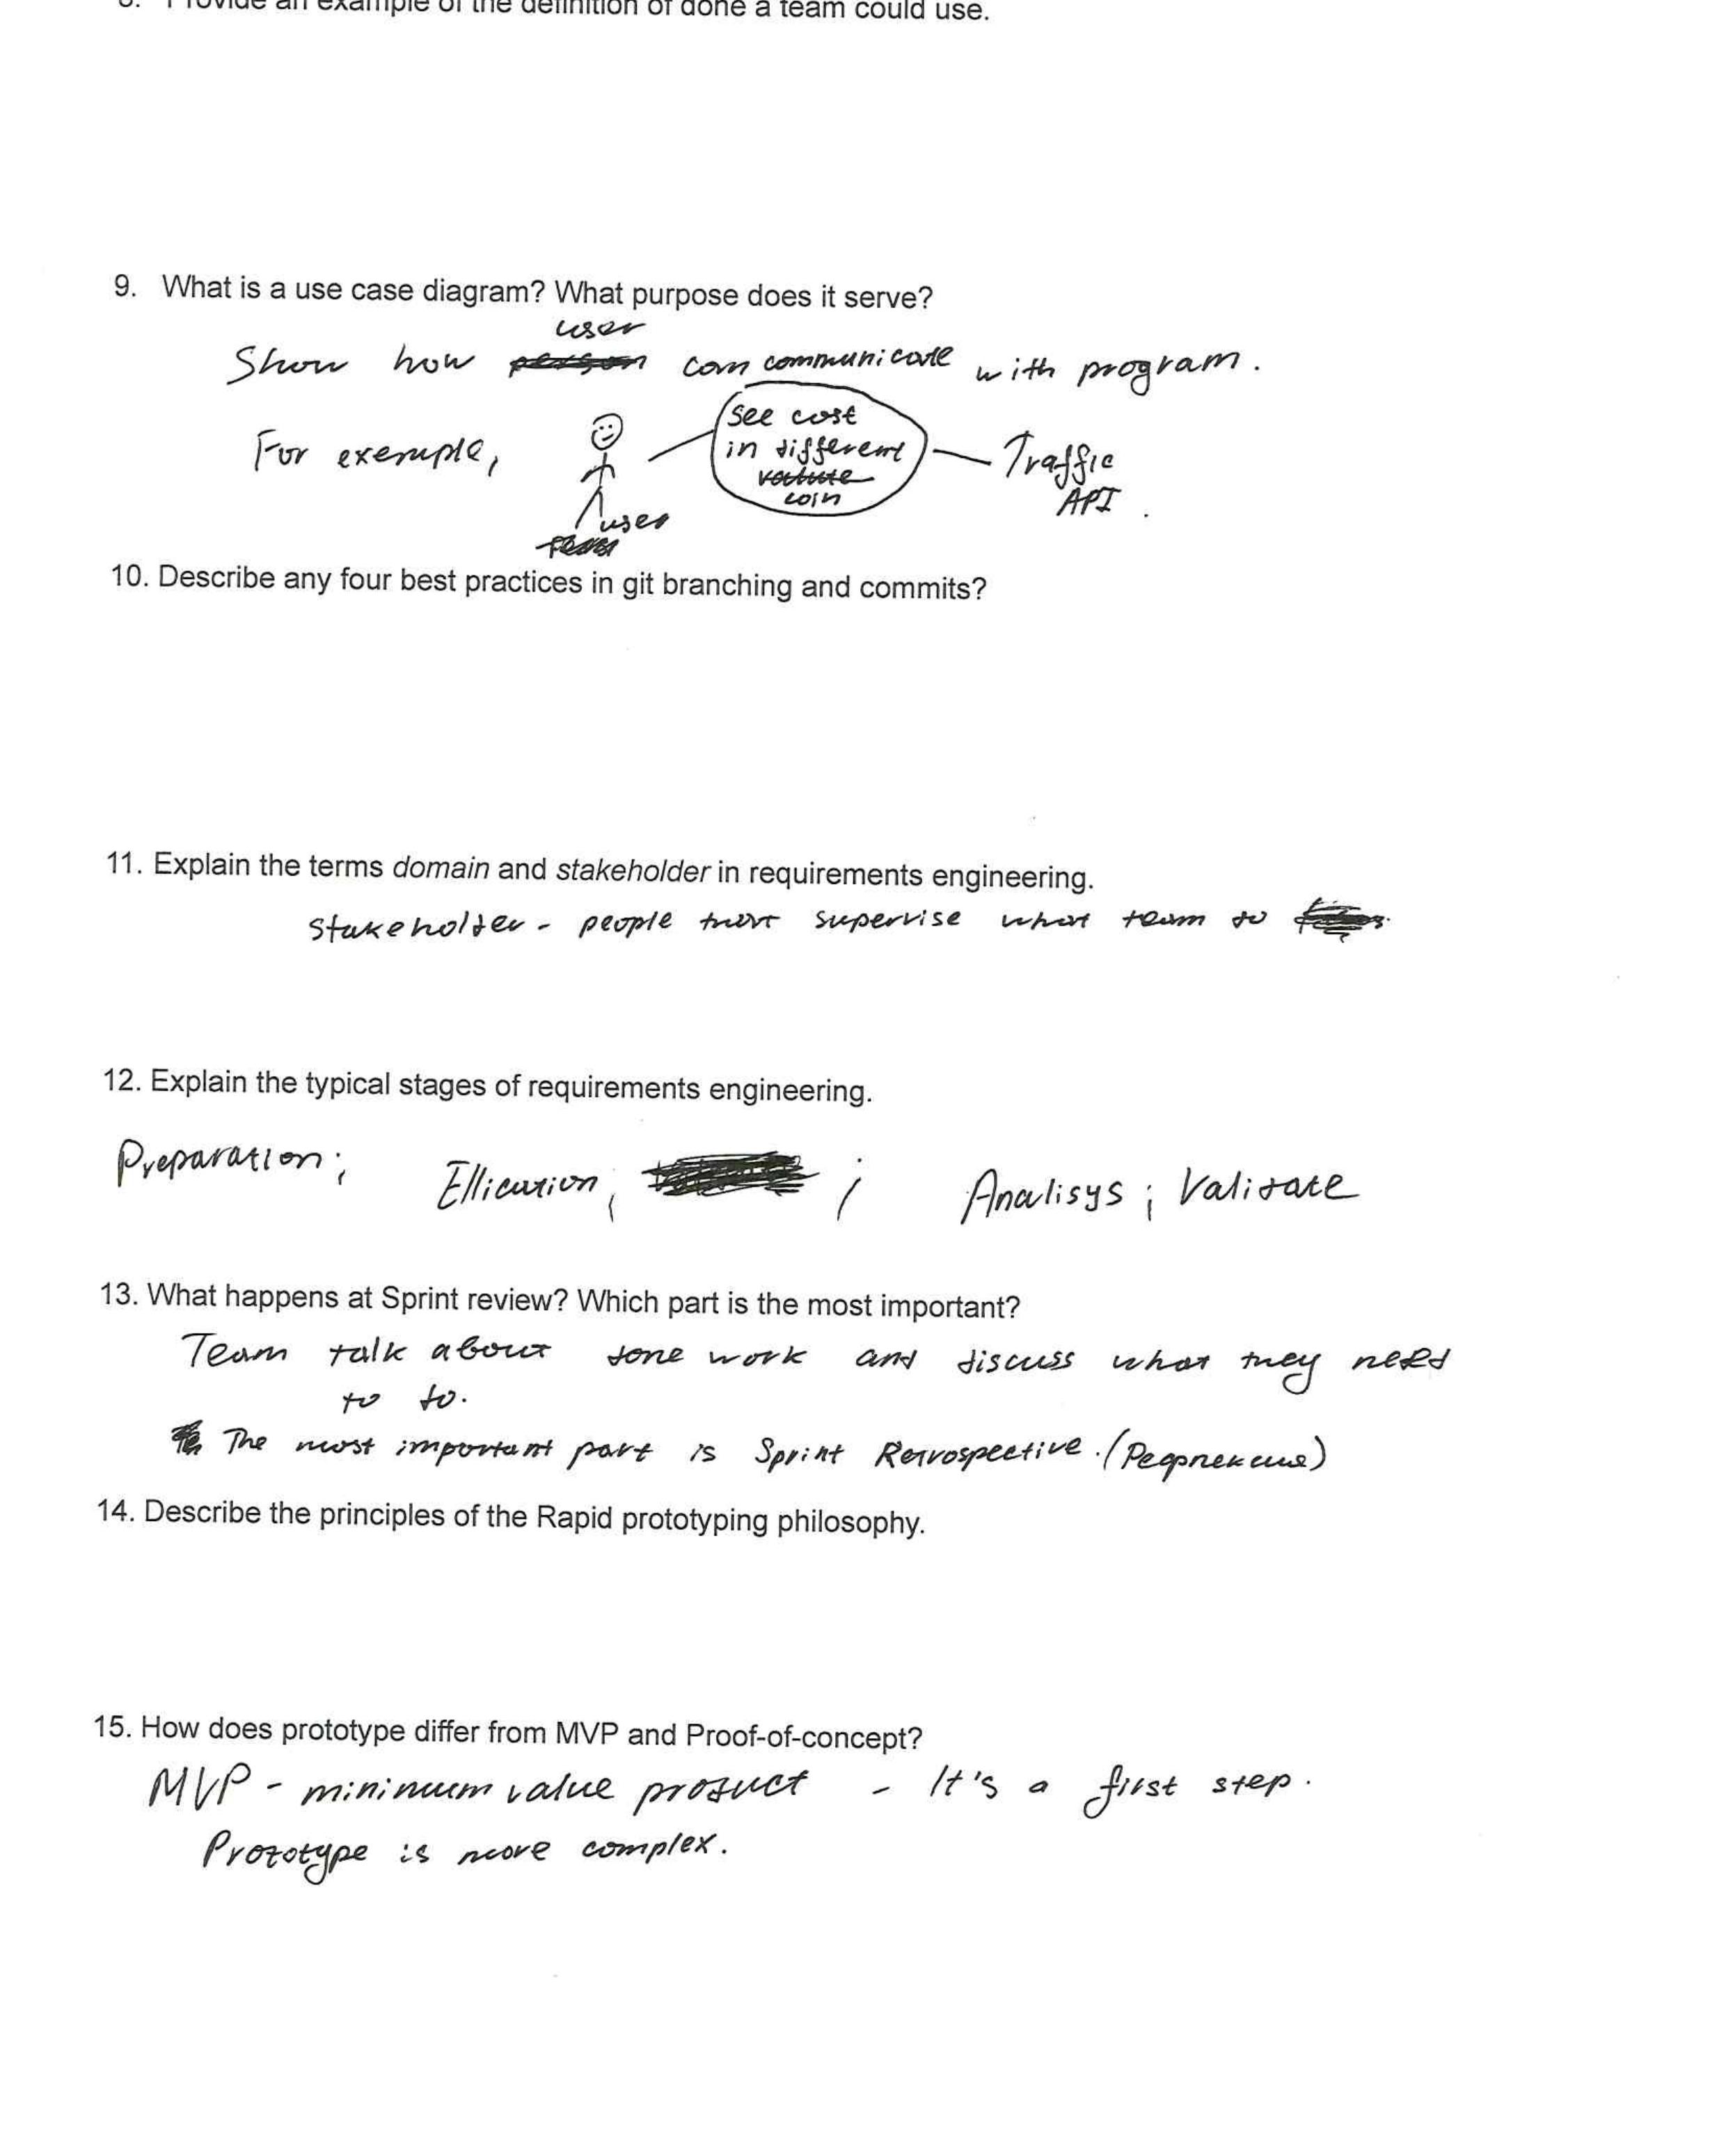 8. Provide an example of the definition of done a team could use.
9. What is a use case diagram? What purpose does it serve?
user
Show how person can communicate with program.
For exemple,
see cost
in different
valute
coin
Traffic
API.
user
10. Describe any four best practices in git branching and commits?
11. Explain the terms domain and stakeholder in requirements engineering.
Stakeholder - people that supervise what team do
12. Explain the typical stages of requirements engineering.
Preparation; Ellication, ; Analisys; Validate
13. What happens at Sprint review? Which part is the most important?
Team talk about done work and discuss what they need
to do.
The most important part is Sprint Retrospective. (Рефлексия)
14. Describe the principles of the Rapid prototyping philosophy.
15. How does prototype differ from MVP and Proof-of-concept?
MVP - mininum value product - It's a first step.
Prototype is more complex.